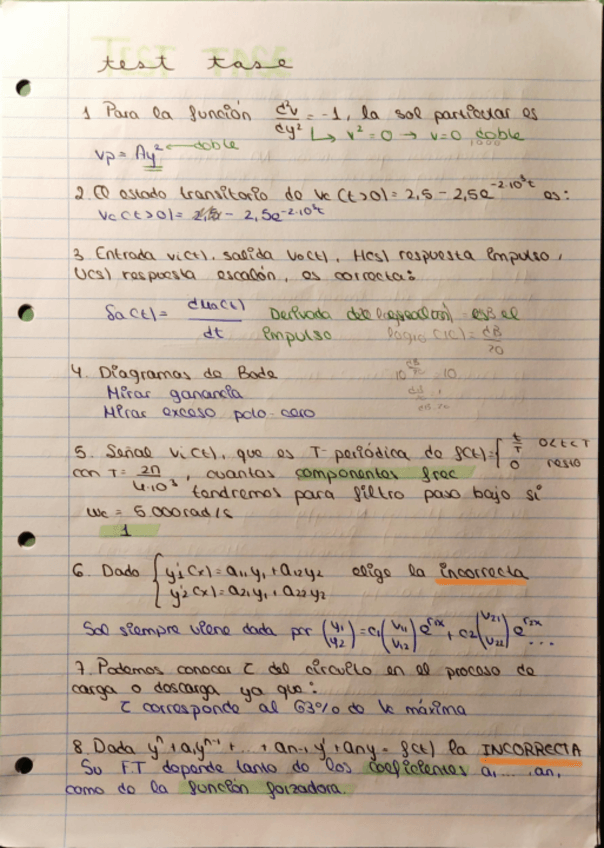 test tase
1 Para la función d²v/dy² = -1, la sol particular es
↳ v² = 0 → v=0 doble
vp = Ay² ← doble
2. El estado transitorio de vc (t>0) = 2,5 - 2,5e^-2·10³t es:
vc(t>0) = - 2,5e^-2·10³t
3 Entrada vi(t), salida vo(t), H(s) respuesta impulso,
U(s) respuesta escalón, es correcta:
δa(t) = dua(t)/dt Derivada del escalón es el
impulso log10 (C) = dB/20
4. Diagramas de Bode
Mirar ganancia
Mirar exceso polo-cero
5. Señal vi(t), que es T-periódica de f(t) = { t/T 0<t<T
0 resto
con T = 2π/4·10³, cuantas componentes frec
tendremos para filtro paso bajo si
wc = 5000rad/s
1
6. Dado { y'1(x) = a11y1 + a12y2 elige la incorrecta
y'2(x) = a21y1 + a22y2
Sol siempre viene dada por (y1 y2) = c1 (v11 v12) e^r1x + c2 (v21 v22) e^r2x ...
7. Podemos conocer τ del circuito en el proceso de
carga o descarga ya que:
τ corresponde al 63% de Vc máxima
8. Dada yⁿ + a1yⁿ⁻¹ + ... + an-1 y' + any = f(t) la INCORRECTA
Su FT depende tanto de los coeficientes a1 ... an,
como de la función forzadora.